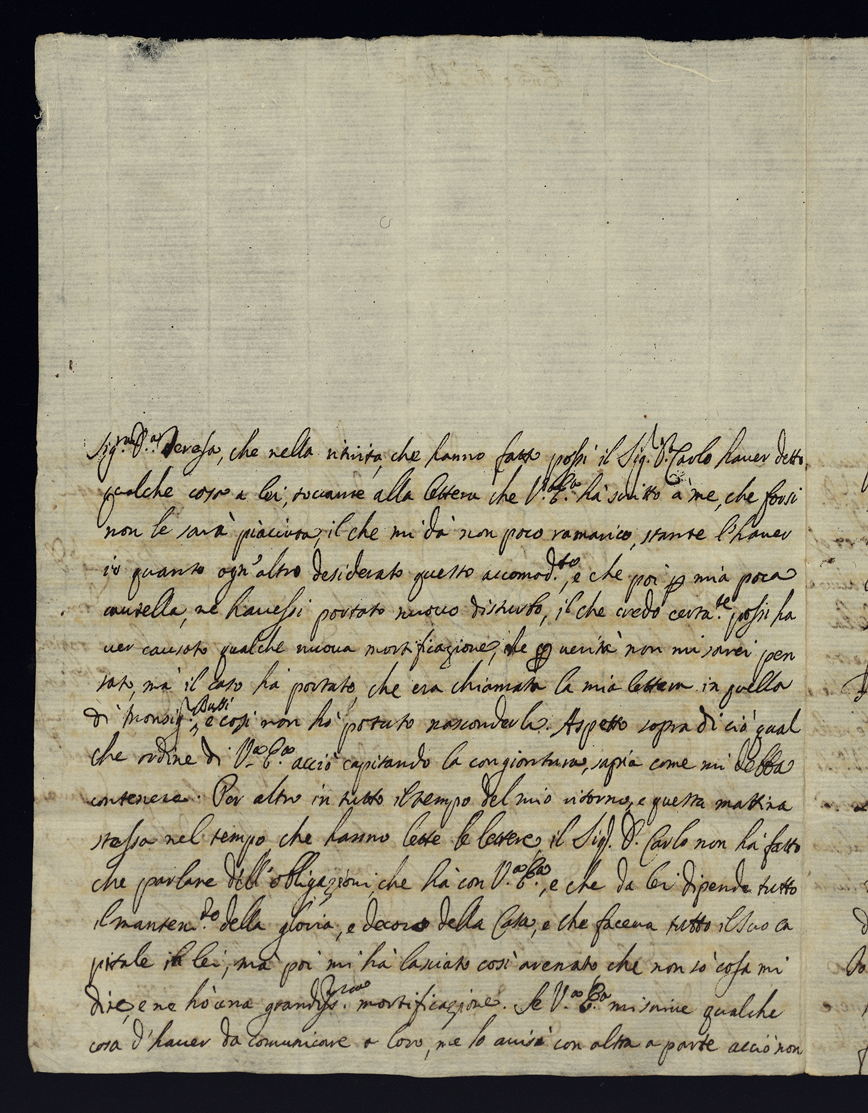 Sig.ra D.a Teresa, che nella ritirata, che hanno fatto possi il Sig.r D. Carlo haver detto
qualche cosa a lei, toccante alla lettera che V.a E.a hà scritto à me, che forsi
non le sarà piaciuta, il che mi dà non poco ramarico, stante l'haver
io quanto ogn'altro desiderato questo accomod.to, e che poi p mia poca
cautella, ne havessi portato nuovo disturbo, il che credo certa.te possi ha
ver causato qualche nuova mortificazione, che p verità non mi sarei pen
sato, mà il caso hà portato, che era chiamata la mia lettera in quella
di Monsig.r Bussi, e così non hò potuto nasconderla. Aspetto sopra di ciò qual
che ordine di V.a E.a acciò capitando la congiontura, sapia come mi debba
contenere. Per altro in tutto il tempo del mio ritorno, e questa mattina
stessa nel tempo che hanno lette le lettere il Sig.r D. Carlo non hà fatto
che parlare dell'obligazioni che hà con V.a E.a, e che da lei dipende tutto
il manten.to della gloria, e decoro della Casa, e che faceva tutto il suo ca
pitale in lei, mà poi mi hà lasciato così arenato che non sò cosa mi
dire, e ne hò una grandiss.ma mortificazione. Se V.a E.a mi scrive qualche
cosa d'haver da comunicare a loro, me lo avisi con altra a parte acciò non